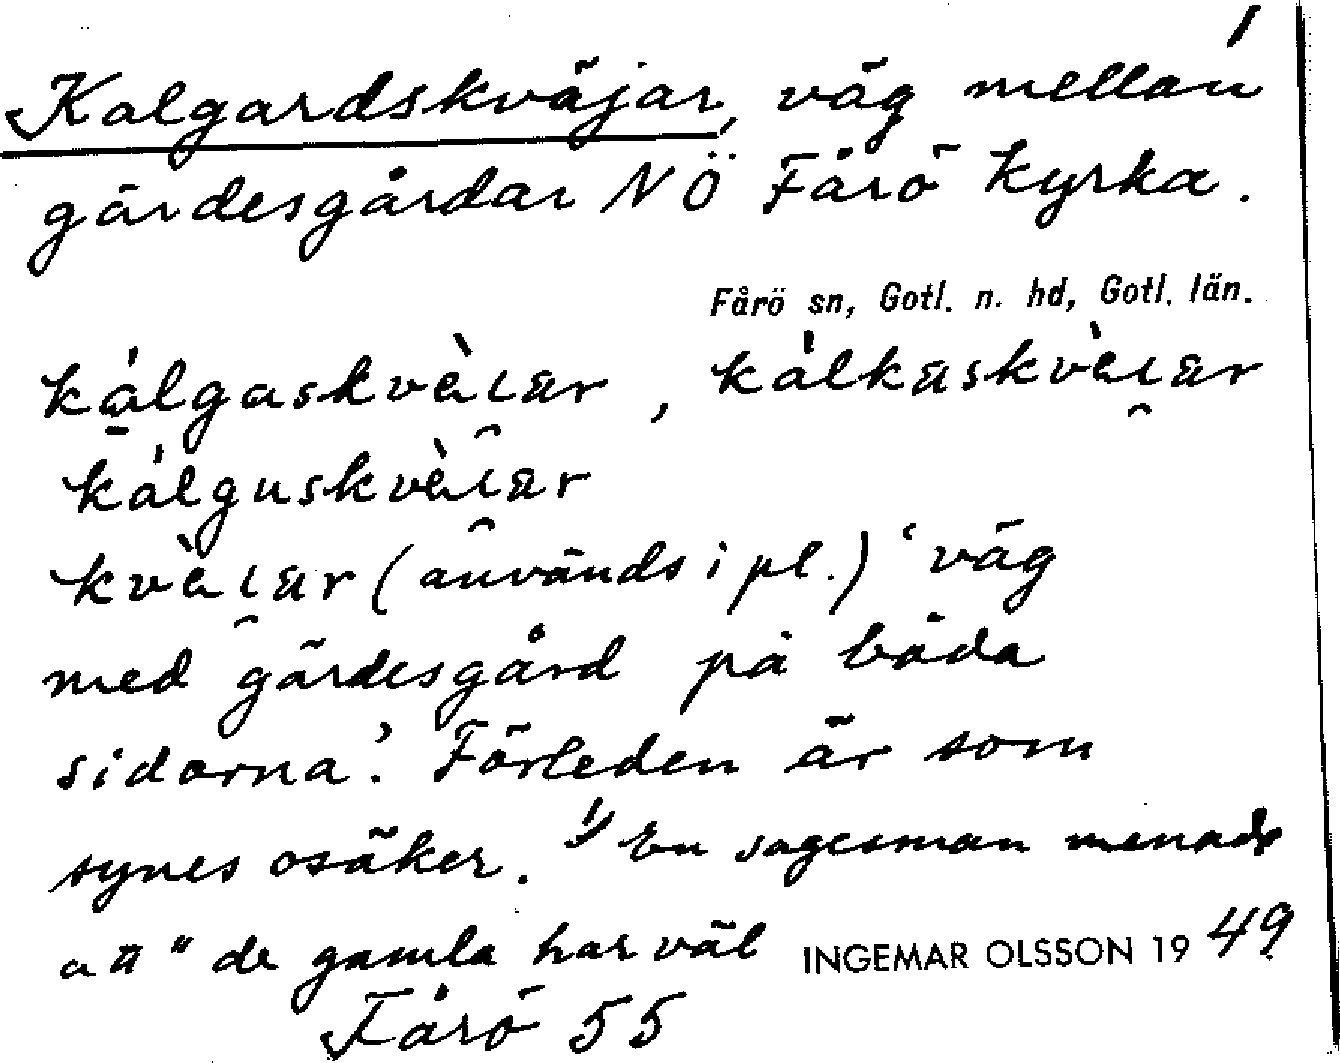 1
Kalgardskväjar, väg mellan
gärdesgårdar NÖ Fårö kyrka.
Fårö sn, Gotl. n. hd, Gotl. län.
kálgaskvèi̯ar, kálkaskvèi̯ar
kálguskvèi̯ar
kvèi̯ar (används i pl.) ‘väg
med gärdesgård på båda
sidorna’. Förleden är som
synes osäker. 1) En sagesman menade
att "de gamla har väl
INGEMAR OLSSON 1949
Fårö 55